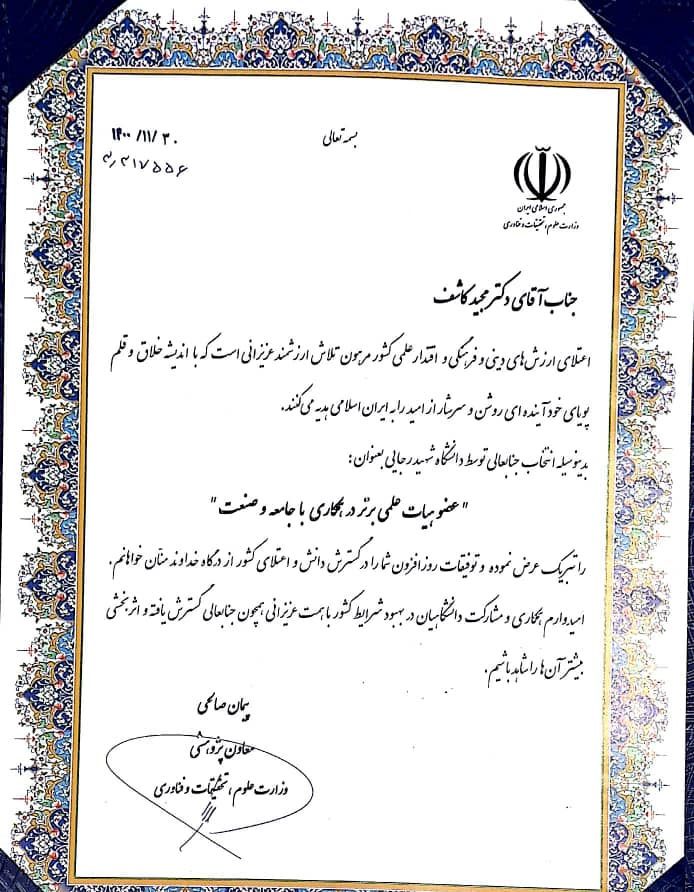 بسمه تعالی
۱۴۰۰/۱۱/۳۰
۳۱۷۵۵۶
جمهوری اسلامی ایران
وزارت علوم، تحقیقات و فناوری
جناب آقای دکتر مجید کاشف
اعتلای ارزش های دینی و فرهنگی و اقتدار علمی کشور مرهون تلاش ارزشمند عزیزانی است که با اندیشه خلاق و قلم
پویای خود آینده ای روشن و سرشار از امید را به ایران اسلامی هدیه می کنند.
بدینوسیله انتخاب جنابعالی توسط دانشگاه شهید رجایی بعنوان:
"عضو هیات علمی برتر در همکاری با جامعه و صنعت"
را تبریک عرض نموده و توفیقات روز افزون شما را در گسترش دانش و اعتلای کشور از درگاه خداوند منّان خواهانم.
امیدوارم همکاری و مشارکت دانشگاهیان در بهبود شرایط کشور با همت عزیزانی همچون جنابعالی گسترش یافته و اثربخشی
بیشتر آن ها را شاهد باشیم.
پیمان صالحی
معاون پژوهشی
وزارت علوم، تحقیقات و فناوری